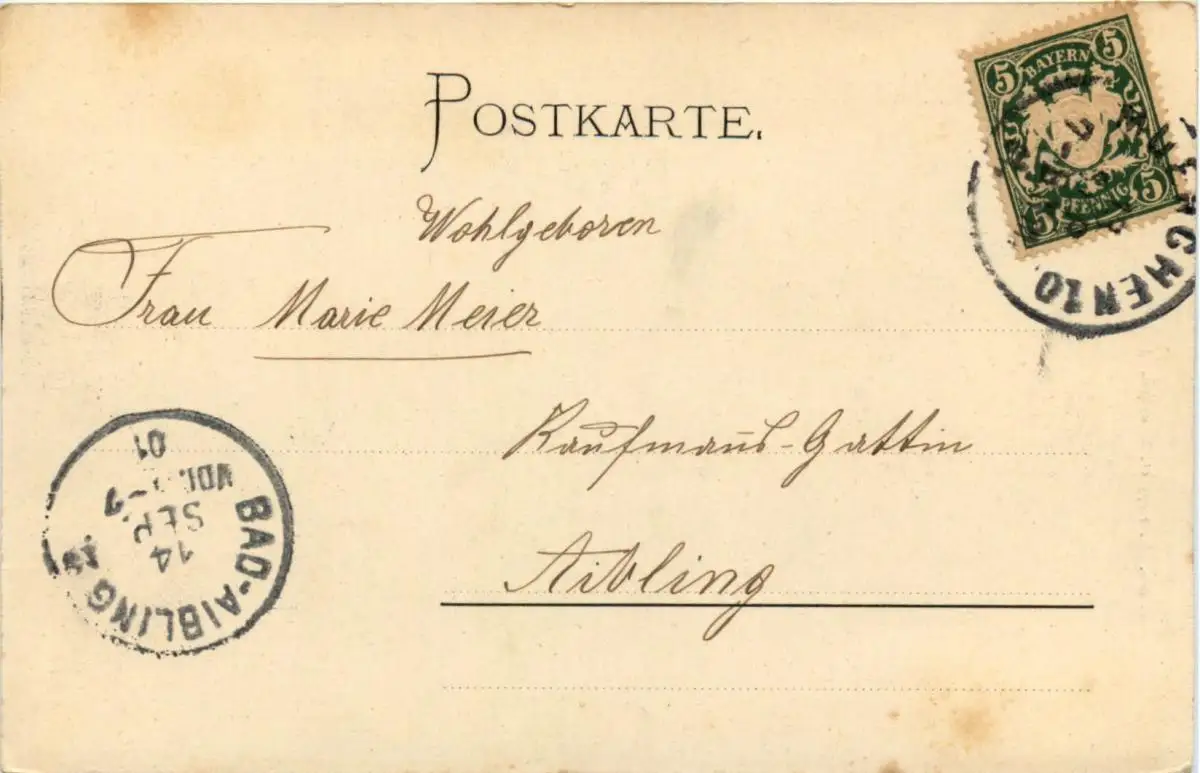 POSTKARTE.
5 BAYERN 5
5 PFENNIG 5
MÜNCHEN 10.
Wohlgeboren
Frau Marie Meier
Kaufmanns-Gattin
Aibling
BAD-AIBLING
14
SEP.
VOR. -7
01